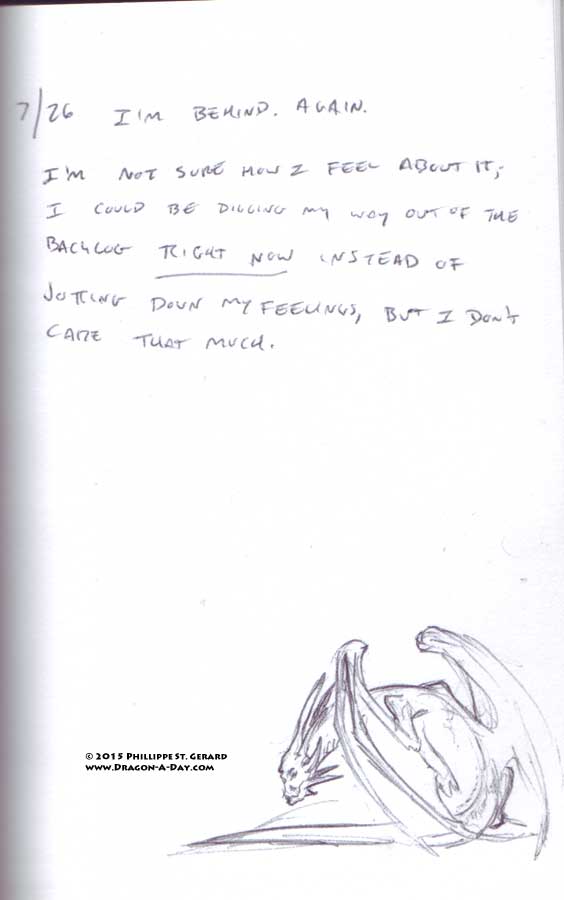 7/26 I'M BEHIND. AGAIN.
I'M NOT SURE HOW I FEEL ABOUT IT;
I COULD BE DIGGING MY WAY OUT OF THE
BACKLOG RIGHT NOW INSTEAD OF
JOTTING DOWN MY FEELINGS, BUT I DON'T
CARE THAT MUCH.
© 2015 PHILLIPPE ST. GERARD
WWW.DRAGON-A-DAY.COM